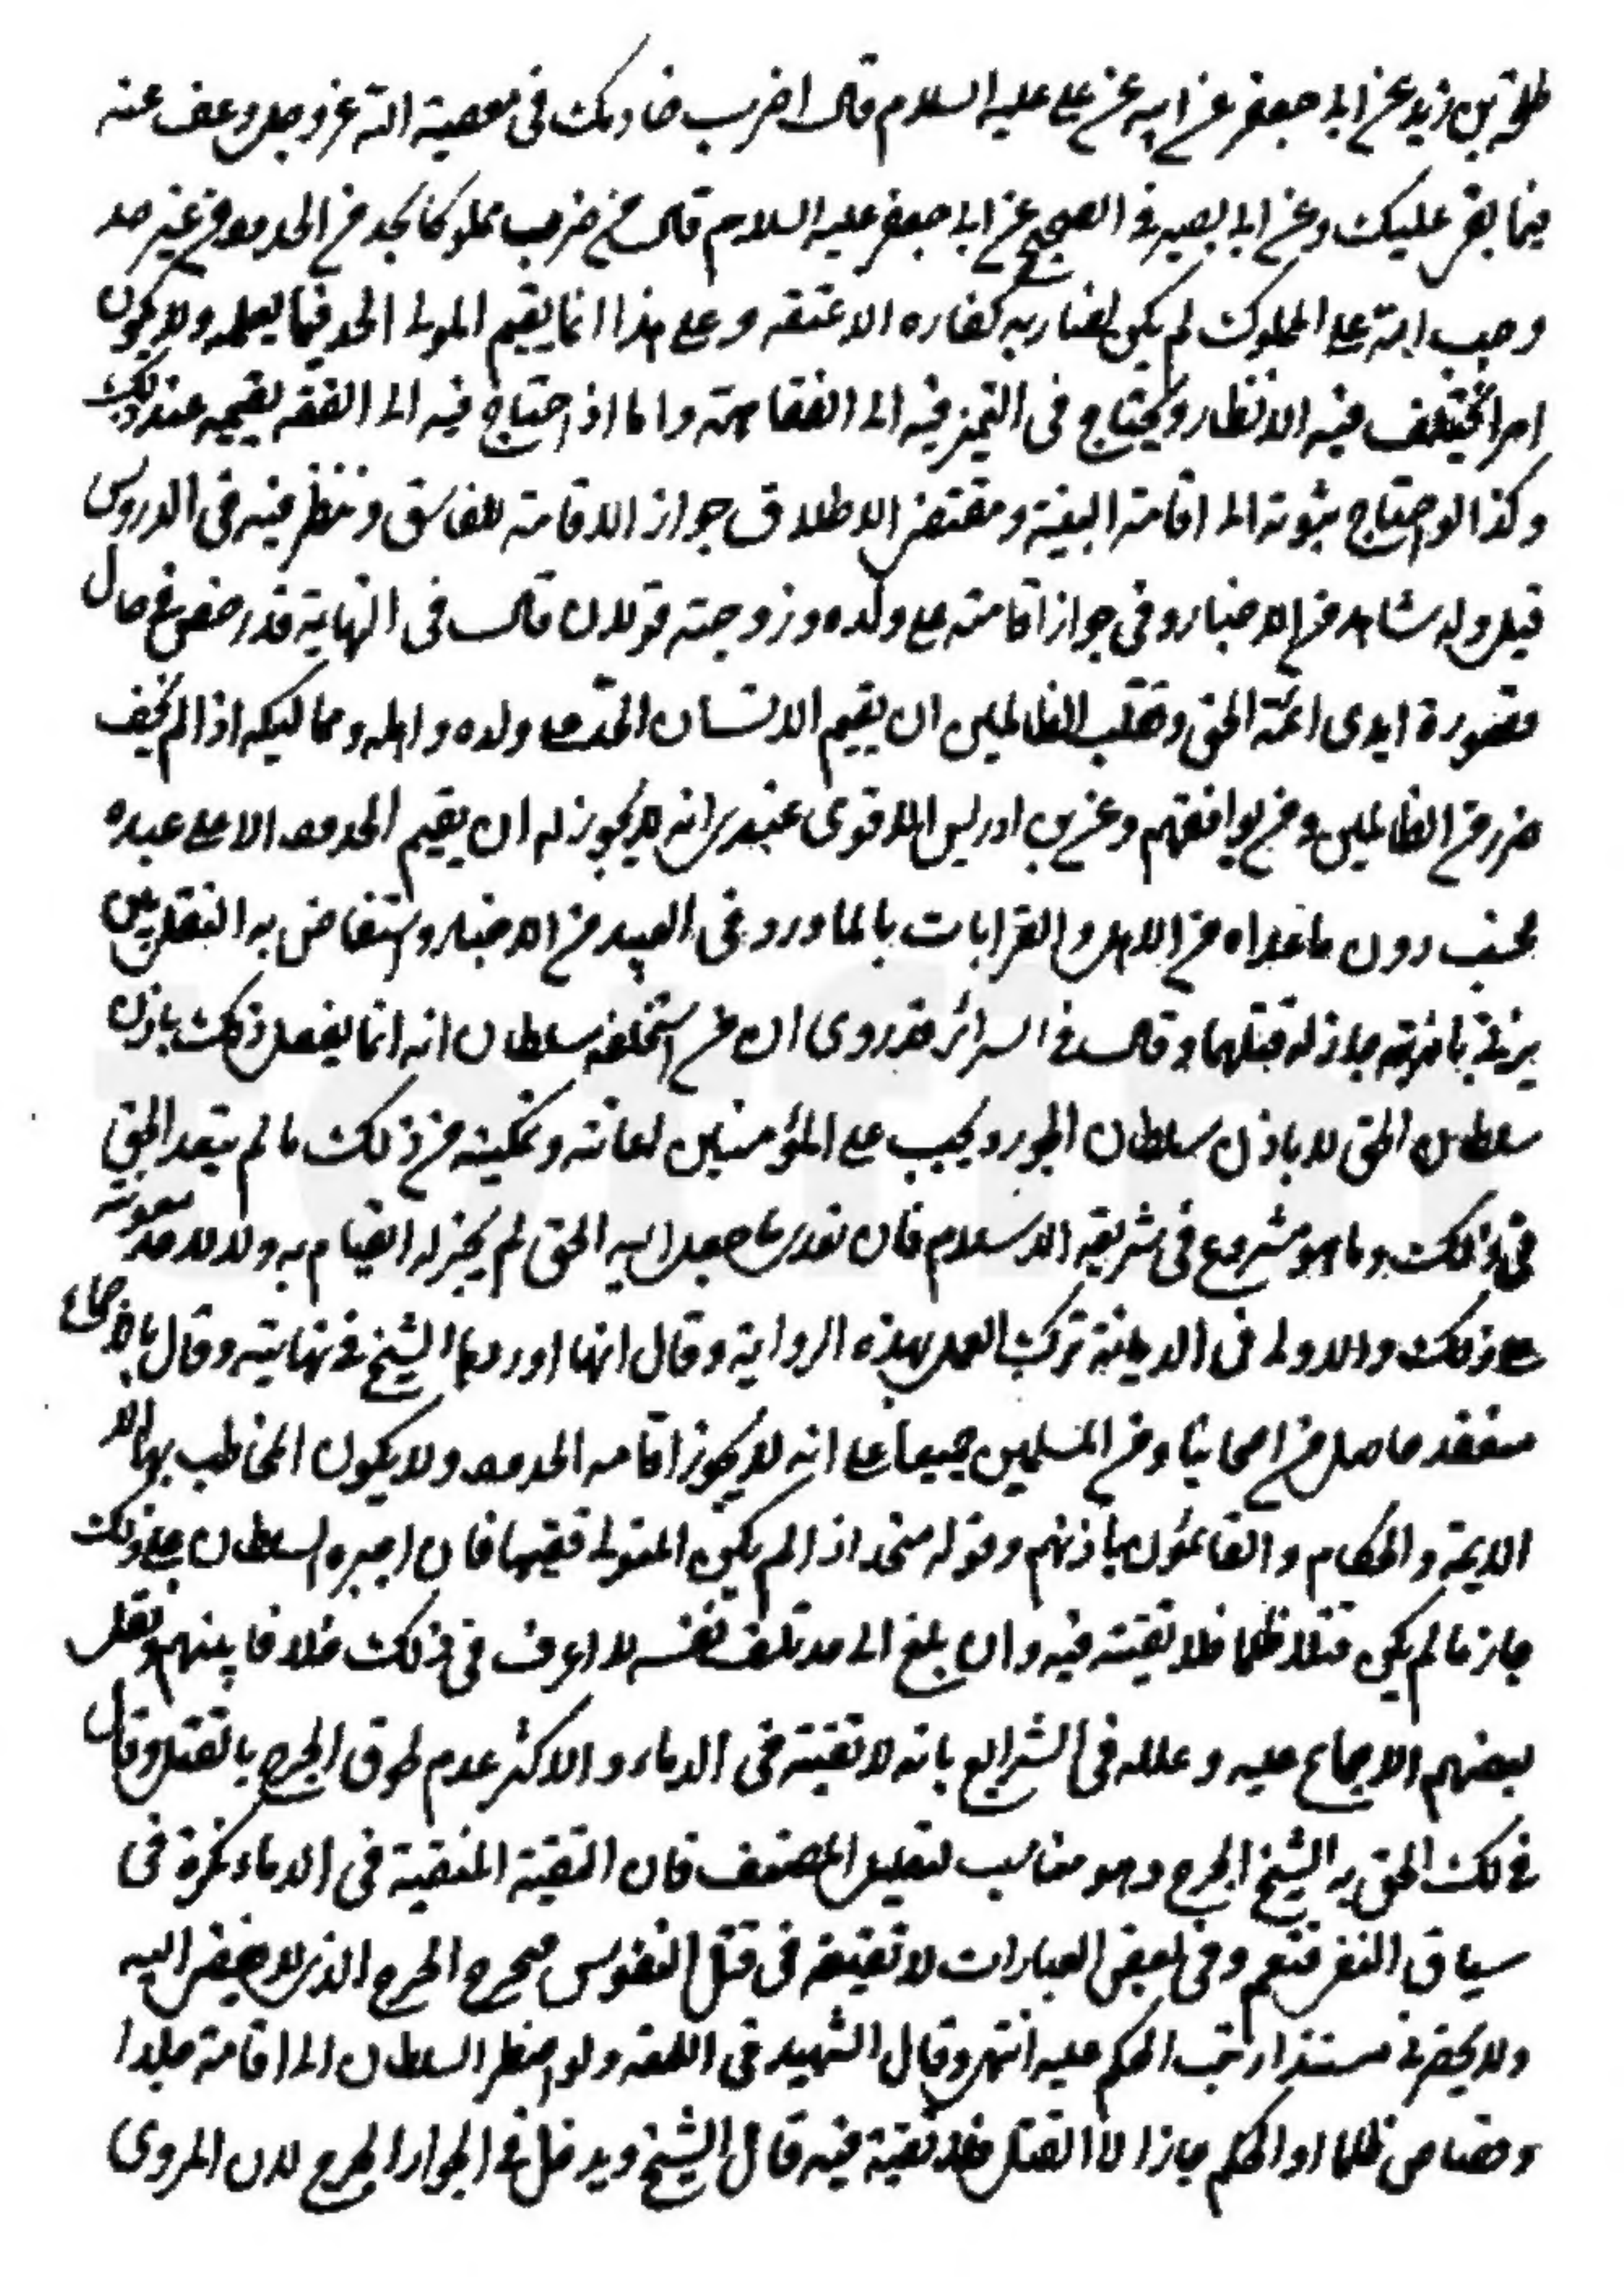 طلحة بن زيد عن ابي جعفر عن ابيه عن علي عليه السلام قال اضرب خادمك في معصية الله عز وجل وعف عنه
فيما يقر عليك وعن ابي بصير في الصحيح عن ابي جعفر عليه السلام قال من ضرب مملوكا بحد من الحدود من غير حد
وجب لله على المملوك لم يكن لضاربه كفاره الا عتقه وعلى هذا انما يقيم المولى الحد فيما يعلمه ولا يكون
امرا يختلف فيه الانظار ويحتاج في التميز فيه الى الفقاهة واما اذا احتاج فيه الى الفقه يقيمه عند ذلك
وكذا لو احتاج ثبوته الى اقامة البينة ومقتضى الاطلاق جواز الاقامة للفاسق وتنظر فيه في الدروس
قيل وله شاهد من الاخبار وفي جواز اقامته على ولده وزوجته قولان قال في النهاية قد رخص في حال
قصورة ايدى ائمة الحق وتغلب الظالمين ان يقيم الانسان الحد على ولده واهله ومماليكه اذا لم يخف
ضرر من الظالمين ومن يوافقهم وعن بن ادريس الاقوى عندى انه لا يجوز له ان يقيم الحدود الا على عبده
فحسب دون ما عداه من الاهل والقرابات بالما ورد في العبيد من الاخبار واستفاض به النقل بين
وقال في السرائر قد روى ان من استخلفه سلطان انه انما يفعل ذلك باذن
سلطان الحق لا باذن سلطان الجور ويجب على المؤمنين اعانته وتمكينه من ذلك ما لم يتعد الحق
في ذلك وما هو مشروع في شريعة الاسلام فان تعدى ما جعل اليه الحق لم يجز له القيام به ولا لاحد معونته
على ذلك والاولى في الديانة ترك العمل بهذه الرواية وقال انها اوردها الشيخ في نهايته وقال بالاجماع
منعقد حاصل من اصحابنا ومن المسلمين جميعا على انه لا يجوز اقامه الحدود ولا يكون المخاطب بها الا
الايمة والحكام والقائمون باذنهم وقوله متحد اذا لم يكن المتولي فقيها فان اجبره السلطان على ذلك
جاز ما لم يكن قتلا ظلما فلا تقية فيه وان بلغ الى حد تلف نفسه لا اعرف في ذلك خلافا بينهم ونقل
بعضهم الاجماع عليه وعلله في الشرايع بانه لا تقية في الدماء والاكثر عدم لحوق الجرح بالقتل وقال
في لك الحق به الشيخ الجرح وهو مناسب لتعليل المصنف فان التقية المنفية في الدماء نكرة في
سياق النفي فتعم وفي بعض العبارات لا تقية في قتل النفوس فيخرج الجرح الذى لا يفضى اليه
ولا يحضرني مستندا رتب الحكم عليه انتهى وقال الشهيد في اللمعه ولو اضطر السلطان الى اقامة حد او
وقصاص ظلما او الحكم جاز الا القتل فلا تقية فيه قال الشيخ ويدخل في الجواز الجرح لان المروى